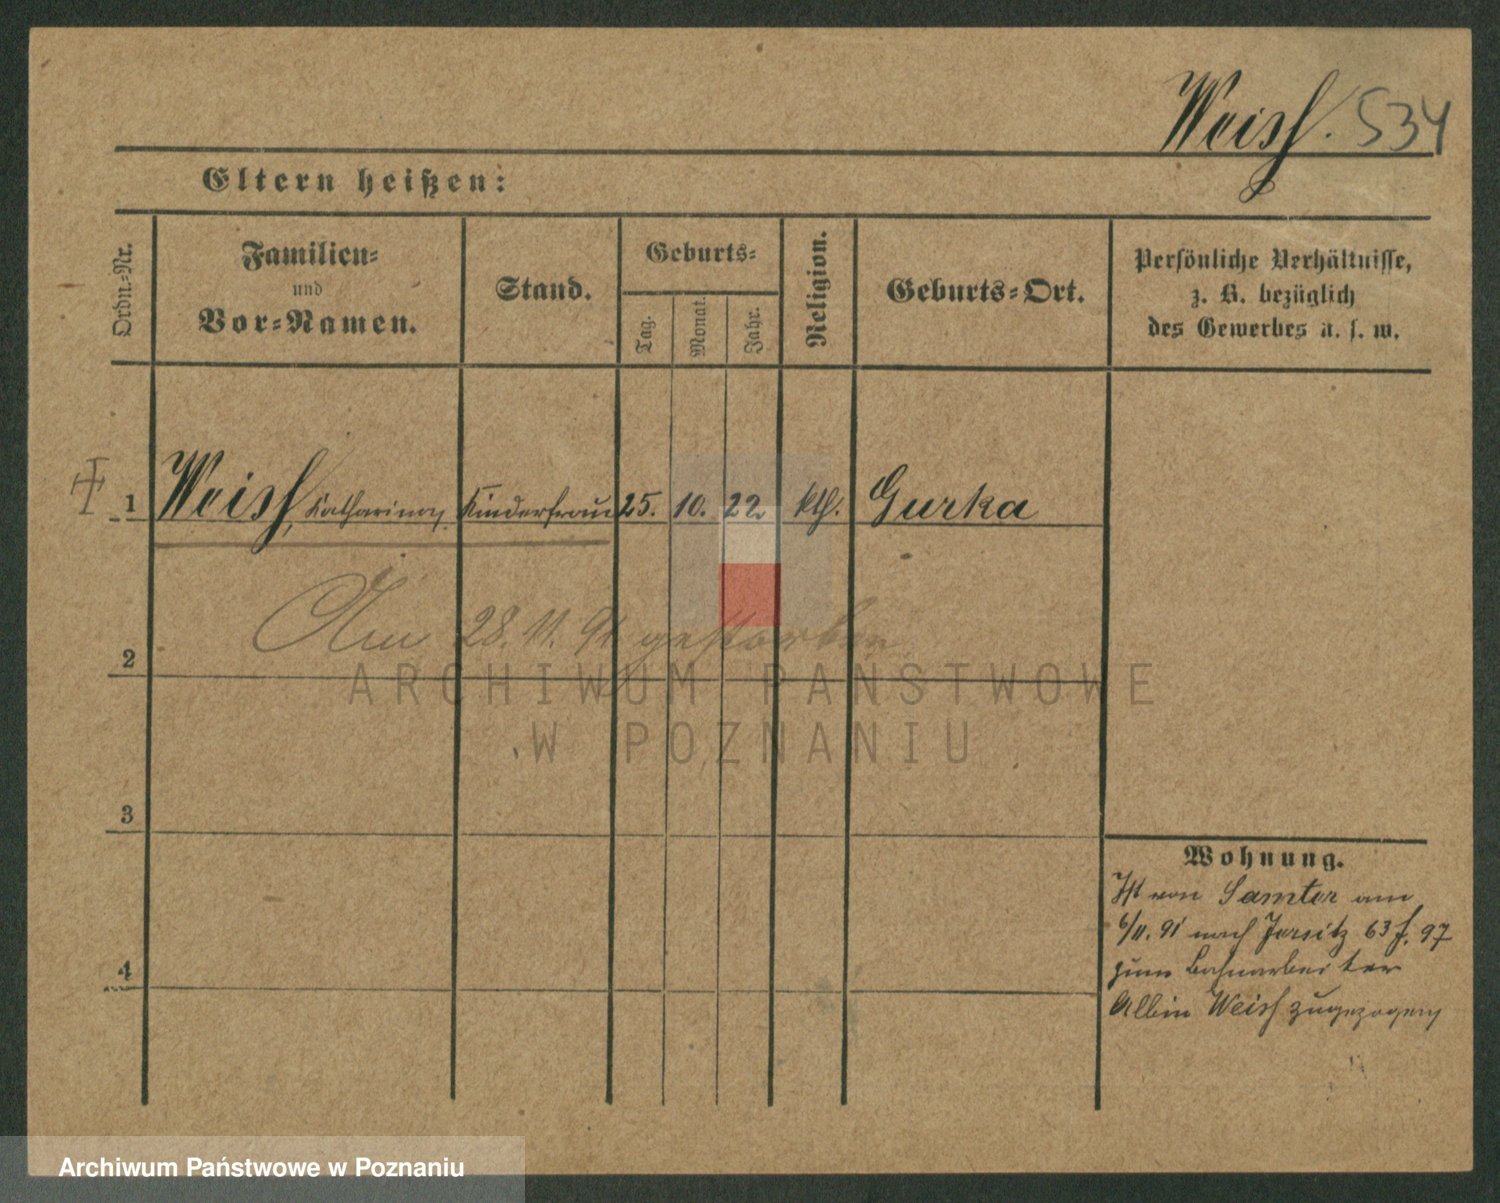 Weiss. 534
Eltern heißen:
Ordn.-Nr.
Familien-
und
Vor-Namen.
Stand.
Geburts-
Tag.
Monat.
Jahr.
Religion.
Geburts-Ort.
Persönliche Verhältnisse,
z. B. bezüglich
des Gewerbes u. s. w.
1 Weiss, Katharina, Kinderfrau 25. 10. 22. kth. Gurka
Am 28. 11. 91 gestorben.
2
3
4
Wohnung.
Ist von Samter am
6/11. 91 nach Jersitz 63 f. 97
zum Bahnarbeiter
Albin Weiss zugezogen
ARCHIWUM PAŃSTWOWE
W POZNANIU
Archiwum Państwowe w Poznaniu